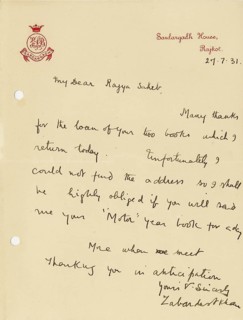 Rajkot.
27-7-31.
My Dear
Many thanks
for the loan of your two books which I
return today. Unfortunately I
could not find the address so I shall
be highly obliged if you will send
me your 'Motor' year book for a day
when meet
Thanking you in anticipation
Yours V. Sincerely